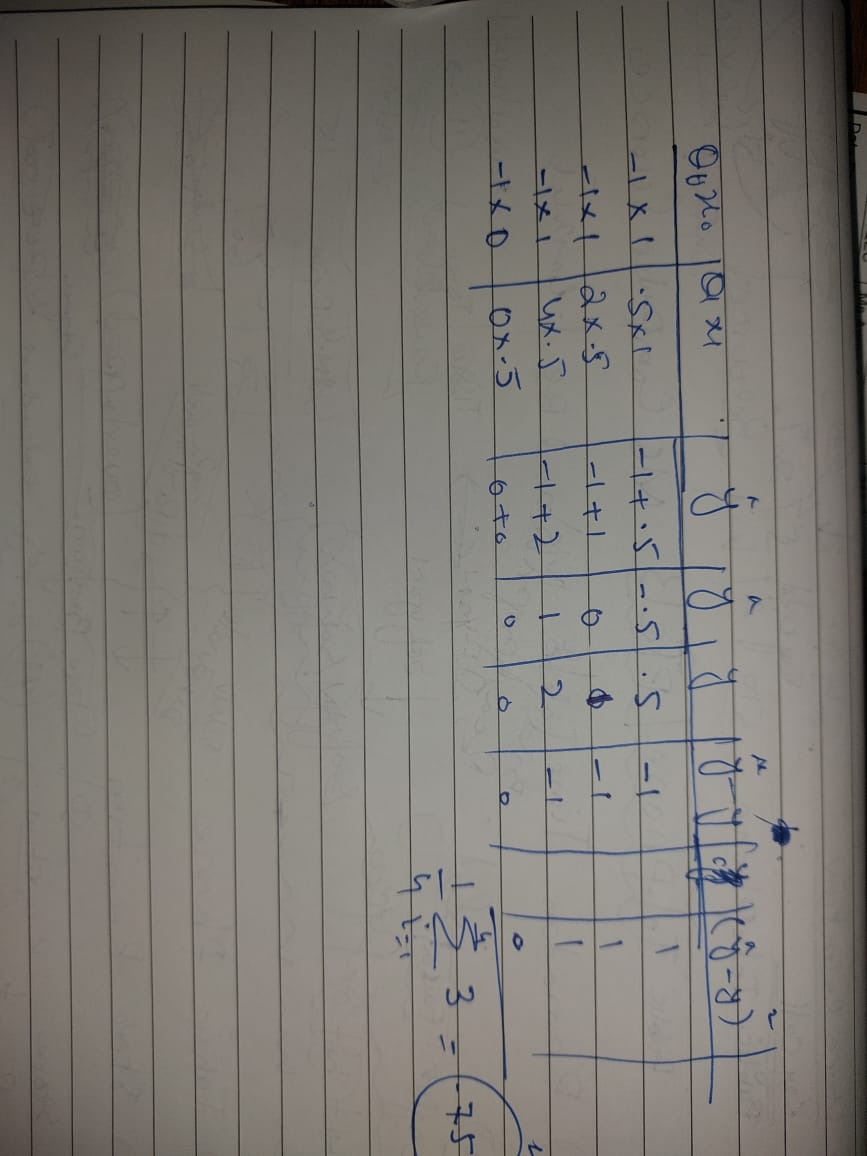 θ₀x₀ | θ₁x₁ | ŷ | ŷ | y | ŷ-y | (ŷ-y)²
-1×1 | .5×1 | -1+.5 | -.5 | .5 | -1 | 1
-1×1 | 2×.5 | -1+1 | 0 | | -1 | 1
-1×1 | 4×.5 | -1+2 | 1 | 2 | -1 | 1
-1×0 | 0×.5 | 0+0 | 0 | 0 | 0 | 0
1/4 4∑i=1 3 = .75